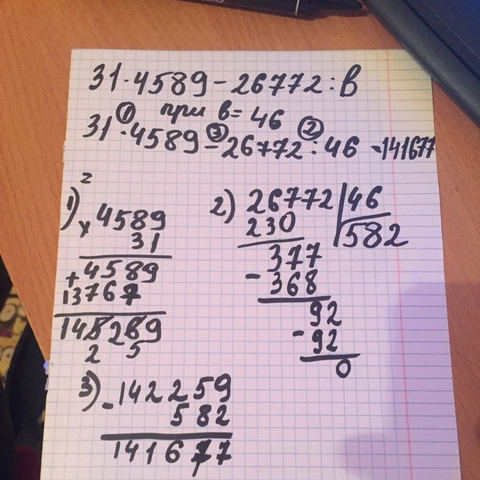 31·4589-26772:в
при в=46
① ③ ②
31·4589-26772:46=141677
1) 2
×4589
31
+4589
13767
148269
2 5
2) 26772|46
230 582
377
-368
92
-92
0
3) -142259
582
141677